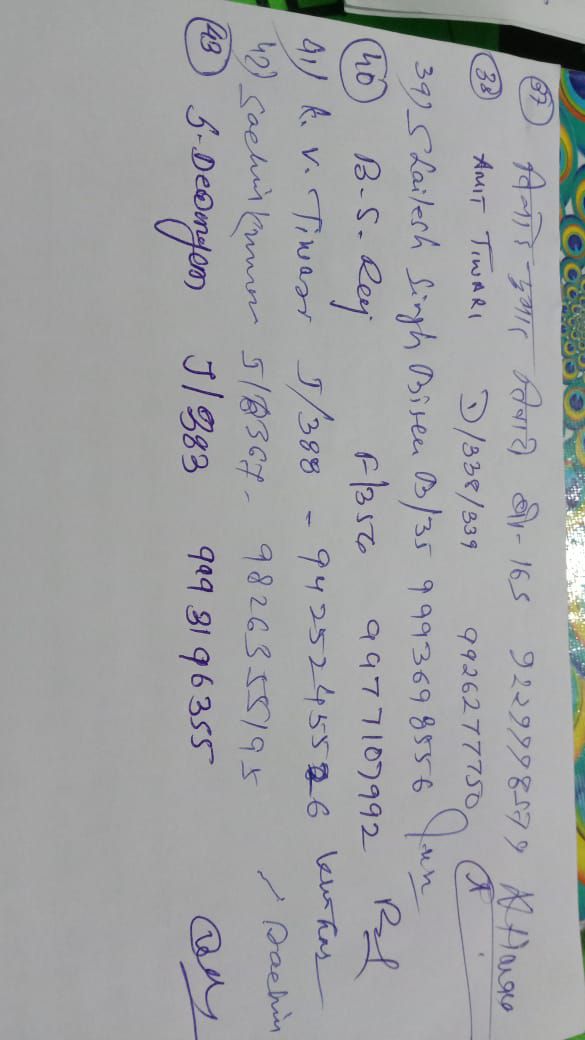 37) विनोद कुमार तिवारी बी-165 9229998579
38) AMIT TIWARI D/338/339 9926277750
39) Shailesh Singh Bisen B/35 9993698556
40) B-S-Rey F/356 9977107992
41) K. V. Tiwari J/388 -
42) Sachin Kumar 9826355195 Sachin
43) S-Dewangan J/383 9993196355